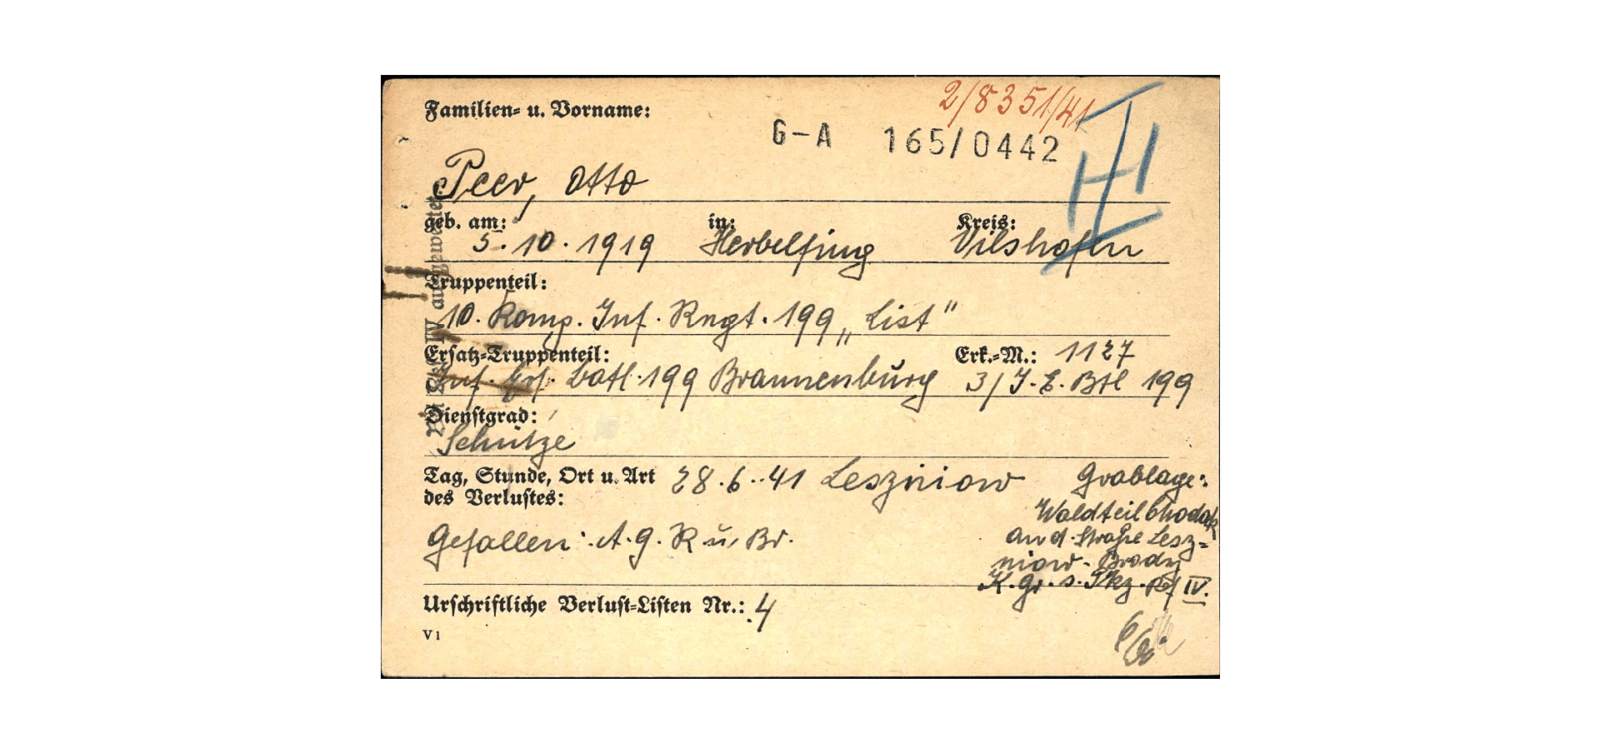 2/8351/41
Familien- u. Vorname:
G-A 165/0442
Peer, Otto
geb. am: in: Kreis:
5.10.1919 Herbelfing Vilshofen
Truppenteil:
10. Komp. Inf. Rngt. 199 „List"
Ersatz-Truppenteil: Erk.-M.: 1127
Inf. Ers. Batl. 199 Brannenburg 3/J.E.Btl 199
Dienstgrad:
Schütze
Tag, Stunde, Ort u. Art 28.6.41 Leszniow Grablage:
des Verlustes:
Waldteil
Gefallen: A.G. R u. Br. an d. Straße Lesz=
niow - Brody
K. Gr. s. Skz. IV.
Urschriftliche Verlust-Listen Nr.: 4
V1